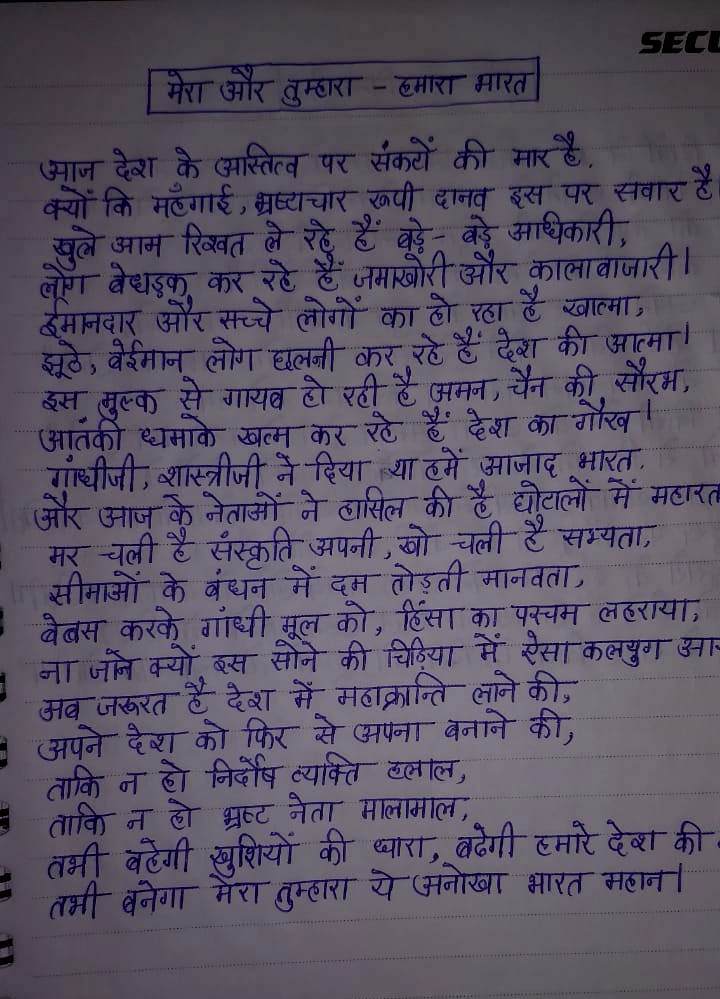 SECU
मेरा और तुम्हारा - हमारा भारत
आज देश के अस्तित्व पर संकटों की मार है,
क्यों कि महँगाई, भ्रष्टाचार रूपी दानव इस पर सवार है
खुले आम रिश्वत ले रहे हैं बड़े-बड़े अधिकारी,
लोग बेधड़क कर रहे हैं जमाखोरी और कालाबाजारी।
ईमानदार और सच्चे लोगों का हो रहा है खात्मा,
झूठे, बेईमान लोग छलनी कर रहे हैं देश की आत्मा।
इस मुल्क से गायब हो रही है अमन, चैन की सौरभ,
आतंकी धमाके खत्म कर रहे हैं देश का गौरव।
गांधीजी, शास्त्रीजी ने दिया था हमें आजाद भारत,
और आज के नेताओं ने हासिल की है घोटालों में महारत
मर चली है संस्कृति अपनी, खो चली है सभ्यता,
सीमाओं के बंधन में दम तोड़ती मानवता,
बेबस करके गांधी मूल को, हिंसा का परचम लहराया,
ना जाने क्यों इस सोने की चिड़िया में ऐसा कलयुग
अब जरूरत है देश में महाक्रान्ति लाने की,
अपने देश को फिर से अपना बनाने की,
ताकि न हो निर्दोष व्यक्ति हलाल,
ताकि न हो भ्रष्ट नेता मालामाल,
तभी बहेगी खुशियों की धारा, बढेगी हमारे देश की
तभी बनेगा मेरा तुम्हारा ये अनोखा भारत महान।